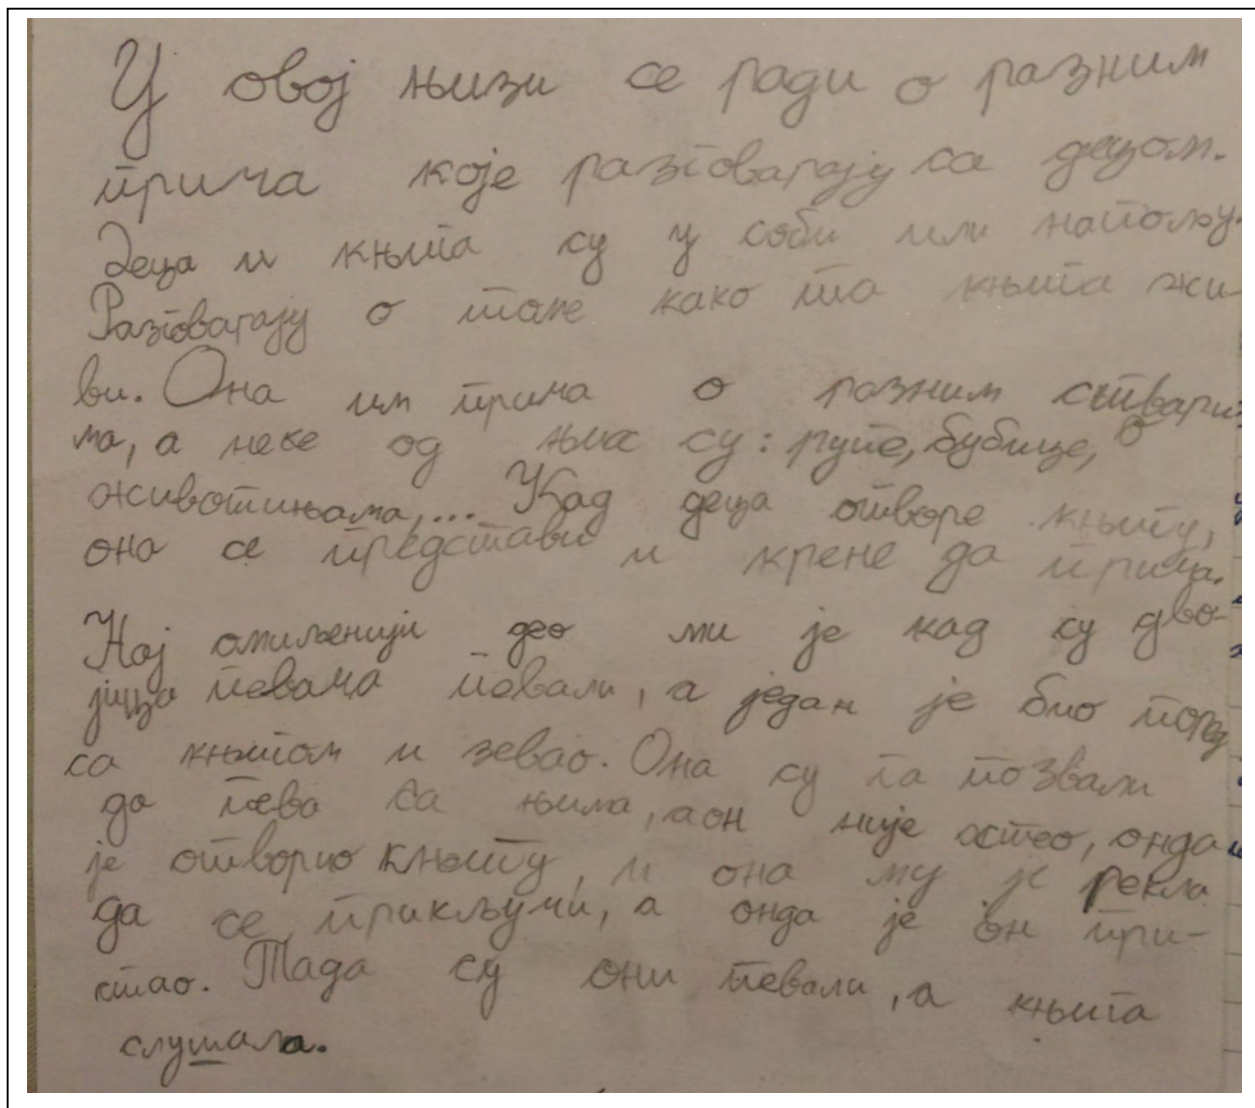 У овој њизи се ради о разним
прича које разговарају са децом.
Деца и књига су у соби или напољу.
Разговарају о томе како та књига жи-
ви. Она им прича о разним ствари
ма, а неке од њих су: рупе, бубице, о
животињама,... Кад деца отворе књигу,
она се представи и крене да прича.
Нај омиљенији део ми је кад су дво-
јица певача певали, а један је био поред
са књигом и зевао. Она су га позвали
да пева са њима, а он није хтео, онда
је отворио књигу, и она му је рекла
да се прикључи, а онда је он при-
стао. Тада су они певали, а књига
слушала.